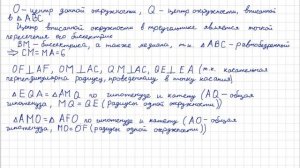 O - центр данной окружности, Q - центр окружности, вписанной
в △ABC
Центр вписанной окружности в треугольнике является точкой
пересечения его биссектрис
BM - биссектриса, а также медиана, т.к. △ABC - равнобедренный
⇒ CM=MA=6
OF⊥AF, OM⊥AC, QM⊥AC, QE⊥EA (т.к. касательная
перпендикулярна радиусу, проведенному в точку касания)
△EQA = △AMQ по гипотенузе и катету (AQ - общая
гипотенуза, MQ = QE (радиусы одной окружности))
△AMO = △AFO по гипотенузе и катету (AO - общая
гипотенуза, MO=OF (радиусы одной окружности))